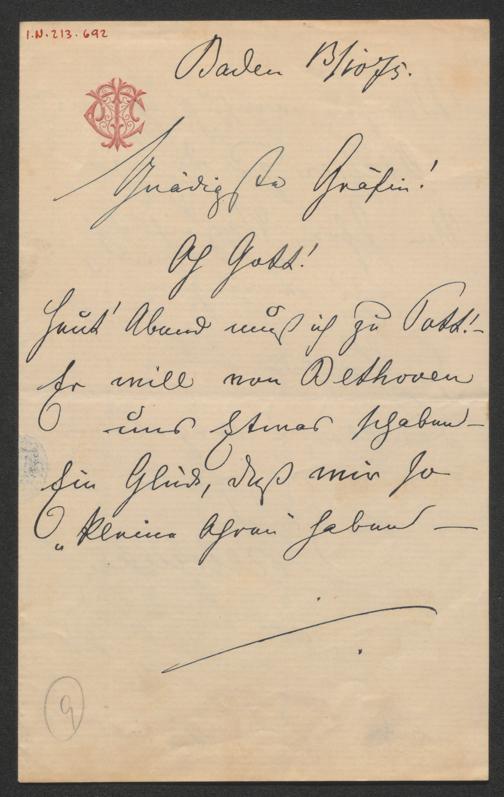 I.N. 213.692
Baden 13/10 75.
Gnädigste Gräfin!
Ach Gott!
Heut' Abend muß ich zu Pott!–
Er will von Bethoven
uns Etwas schaben–
Ein Glück, daß wir so
„kleine Ohren" haben –
9